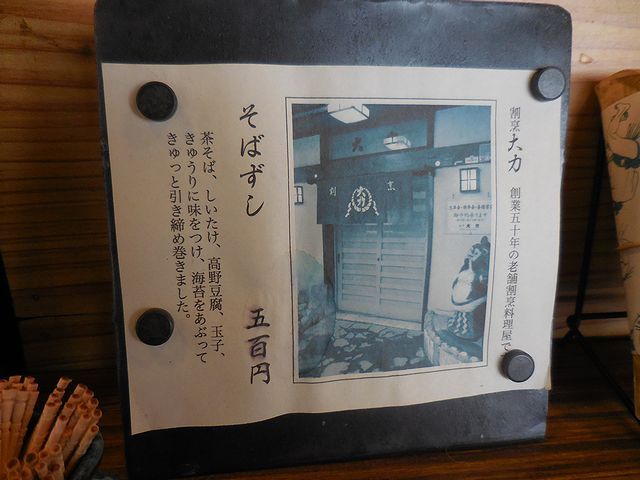 割烹 大力 創業五十年の老舗割烹料理屋で
大力
割
烹
大力
そばずし 五百円
茶そば、しいたけ、高野豆腐、玉子、
きゅうりに味をつけ、海苔をあぶって
きゅっと引き締め巻きました。